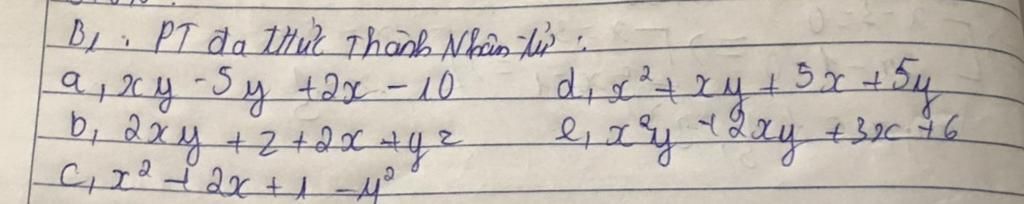 B1: PT đa thức Thành Nhân tử:
a, xy - 5y + 2x - 10 d, x² + xy + 5x + 5y
b, 2xy + z + 2x + yz e, x²y + 2xy + 3x + 6
c, x² + 2x + 1 - y²